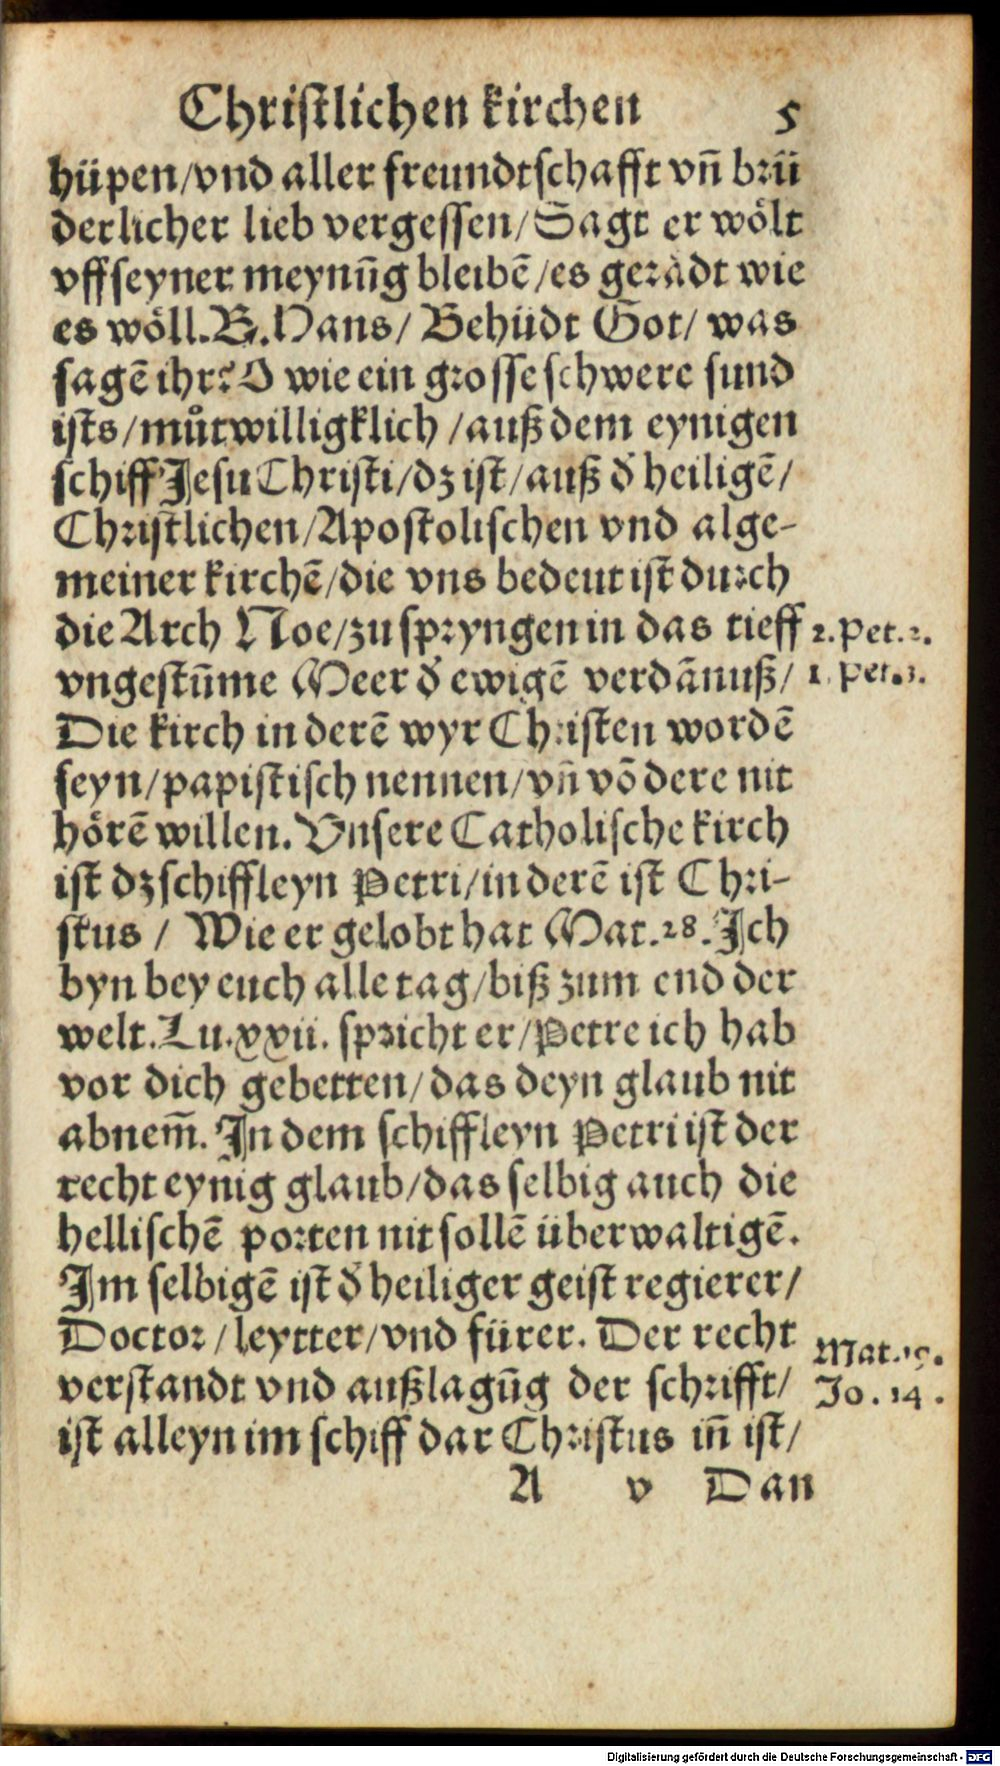 Christlichen kirchen 5
hüpen/vnd aller freundtschafft vñ brü
derlicher lieb vergessen/Sagt er wölt
vff seyner meynũg bleibẽ/es gerädt wie
es wöll. B. Hans/ Behüdt Got/ was
sagẽ ihr? O wie ein grosse schwere sund
ists/můtwilligklich /auß dem eynigen
schiff Jesu Christi/dz ist/auß d̕ heiligẽ/
Christlichen/Apostolischen vnd alge-
meiner kirchẽ/die vns bedeut ist durch
die Arch Noe/zu spryngen in das tieff
2. Pet. 2.
vngestũme Meer d̕ ewigẽ verdãnuß/
1. Pet. 3.
Die kirch in derẽ wyr Christen wordẽ
seyn/papistisch nennen/vñ võ dere nit
hörẽ willen. Vnsere Catholische kirch
ist dz schiffleyn Petri/in derẽ ist Chri-
stus / Wie er gelobt hat Mat. 28. Ich
byn bey euch alle tag/biß zum end der
welt. Lu. xxii. spricht er/Petre ich hab
vor dich gebetten/das deyn glaub nit
abnem̃. In dem schiffleyn Petri ist der
recht eynig glaub/das selbig auch die
hellischẽ porten nit sollẽ überwaltigẽ.
Im selbigẽ ist d̕ heiliger geist regierer/
Doctor/leytter/vnd fürer. Der recht
Mat.
verstandt vnd außlagũg der schrifft/
Jo. 14.
ist alleyn im schiff dar Christus iñ ist/
A v Dan
Digitalisierung gefördert durch die Deutsche Forschungsgemeinschaft - DFG